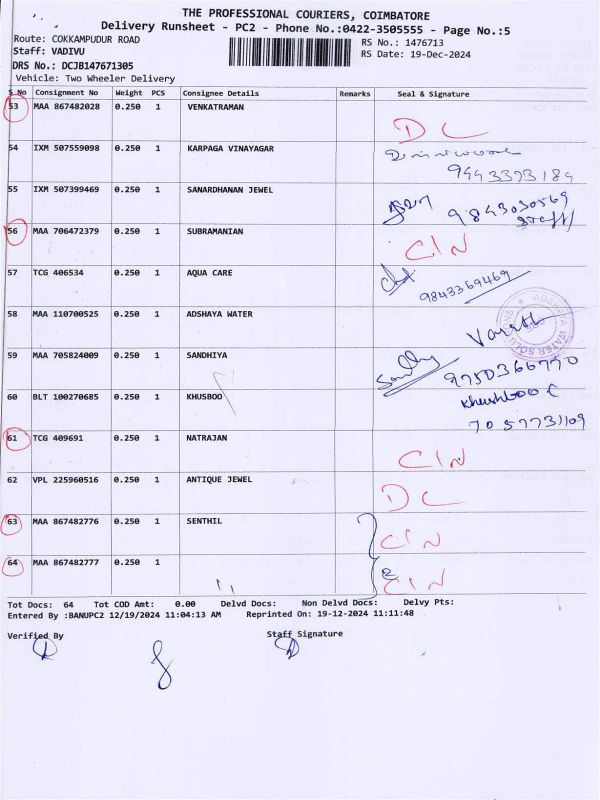 THE PROFESSIONAL COURIERS, COIMBATORE
Delivery Runsheet - PC2 - Phone No.:0422-3505555 - Page No.:5
Route: COKKAMPUDUR ROAD RS No.: 1476713
Staff: VADIVU RS Date: 19-Dec-2024
DRS No.: DCJB147671305
Vehicle: Two Wheeler Delivery
S No Consignment No Weight PCS Consignee Details Remarks Seal & Signature
53 MAA 867482028 0.250 1 VENKATRAMAN DL
54 IXM 507559098 0.250 1 KARPAGA VINAYAGAR
9443393184
55 IXM 507399469 0.250 1 SANARDHANAN JEWEL 9843030569
staff
56 MAA 706472379 0.250 1 SUBRAMANIAN CIN
57 TCG 406534 0.250 1 AQUA CARE 9843369469
58 MAA 110700525 0.250 1 ADSHAYA WATER ADSHAYA WATER SOLUTIONS
59 MAA 705824009 0.250 1 SANDHIYA 9750366770
60 BLT 100270685 0.250 1 KHUSBOO Khushboo C
7057731109
61 TCG 409691 0.250 1 NATRAJAN CIN
62 VPL 225960516 0.250 1 ANTIQUE JEWEL DL
63 MAA 867482776 0.250 1 SENTHIL CIN
64 MAA 867482777 0.250 1 CIN
Tot Docs: 64 Tot COD Amt: 0.00 Delvd Docs: Non Delvd Docs: Delvy Pts:
Entered By :BANUPC2 12/19/2024 11:04:13 AM Reprinted On: 19-12-2024 11:11:48
Verified By Staff Signature